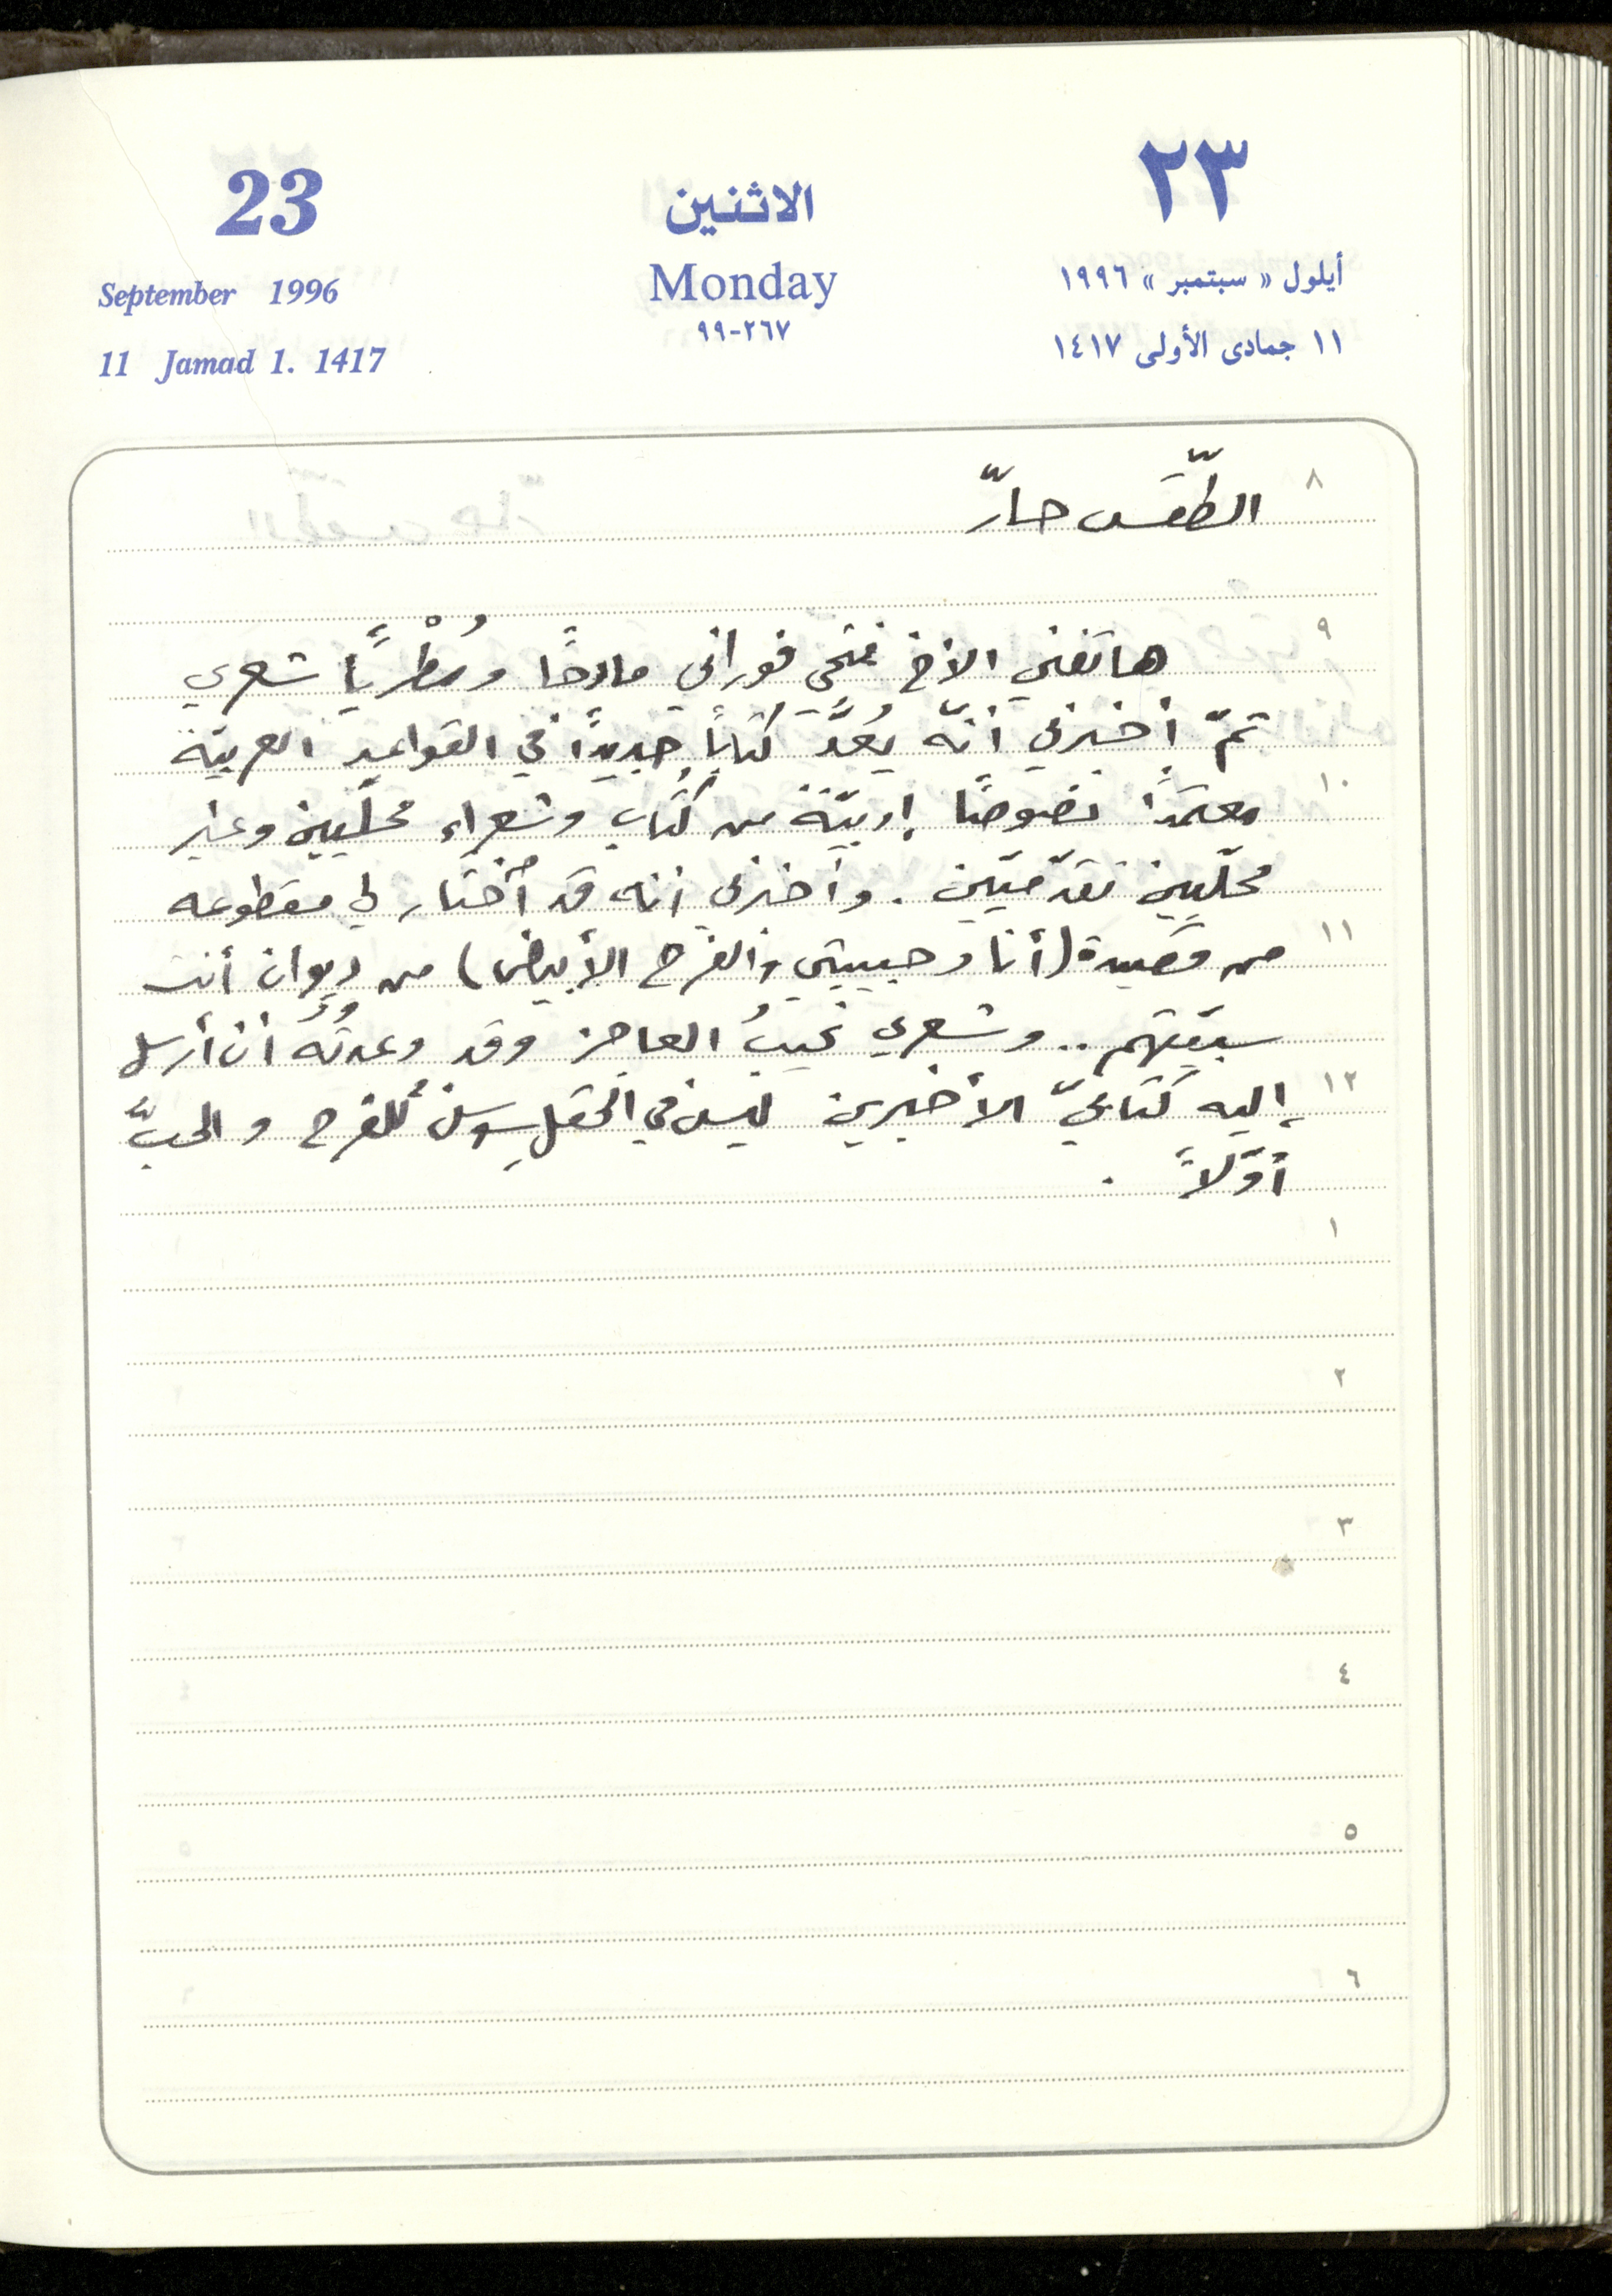 23
الاثنين
٢٣
September 1996
Monday
أيلول « سبتمبر » ١٩٩٦
٢٦٧-٩٩
11 Jamad 1. 1417
١١ جمادى الأولى ١٤١٧
٨
الطّقس حارّ
٩
هاتفني الأخ فتحي فوراني مادحًا ومُطْريًا شعري
ثمّ أخبرني أنّه يُعدُّ كتابًا جديدًا في القواعد العربيّة
١٠
معتمدًا نصوصًا أدبيّة من كُتّاب وشعراء محلّيين وغير
محلّيين تقدّميّين . وأخبرني أنه قد أختار لي مقطوعه
١١
من قصيدة (أنا وحبيبتي والفرح الأبيض) من ديوان أنت
سبيّتهم .. وشعري العاجز وقد وعدتُهُ أن أرسل
١٢
إليه كتابيّ الأخيرين ليس في الحقل سوسن للفرح والحبُّ
أوّلاً .
١
٢
٣
٤
٥
٦